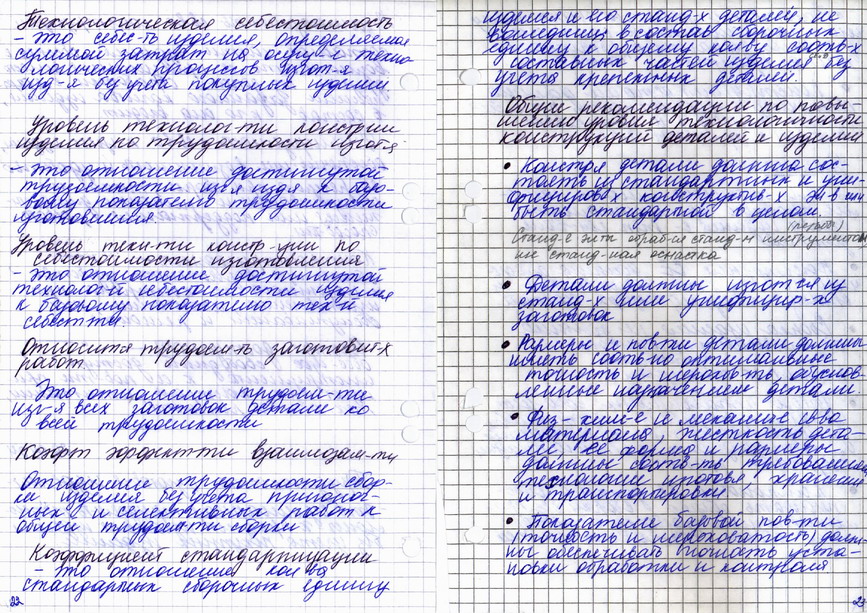 Технологическая себестоимость
- это себес-ть изделия, определяемая
суммой затрат на осущ-е техно
логических процессов изгот-я
изд-я без учета покупных изделий
Уровень технолог-ти констр-ции
изделия по трудоемкости изгот-я
- это отношение достигнутой
трудоемкости изг-я изд-я к базо-
вому показателю трудоемкости
изготовления.
Уровень техн-ти констр-ции по
себестоимости изготовления
- это отношение достигнутой
технолог-й себестоимости изделия
к базовому показателю тех-й
себест-ти.
Относит-я трудоем-ть заготовит-х
работ
Это отношение трудоем-ти
изг-я всех заготовок детали ко
всей трудоемкости
Коэфт эффект-ти взаимозам-ти
Отношение трудоемкости сбор-
ки изделия без учета пригоноч-
ных и селективных работ к
общей трудоем-ти сборки
Коэффициент стандартизации
- это отношение кол-ва
стандартных сборочных единиц
23
изделия и его станд-х деталей, не
вошедших в состав сборочных
единиц к общему кол-ву
составных частей изделия без
учета крепежных деталей
Общие рекомендации по повы-
шению уровня технологичности
конструкций деталей и изделий
• Констр-я детали должна сос-
тоять из стандартных и уни-
фицирова-х конструктив-х эл-в или
быть стандартной в целом.
Станд-е эл-ты обраб-ся станд-м инструментом
станд-ная оснастка
• Детали должны изгот-ся из
станд-х или унифицир-х
заготовок
• Размеры и пов-ти детали должны
иметь соотв-но оптимальные
точность и шерохов-ть, обуслов-
ленные назначением детали.
• Физ-хим-е и механич-е св-ва
материала, жесткость дета-
ли, её форма и размеры
должны соотв-ть требованиям
технологии изготовл, хранения
и транспортировки
• Показатели базовой пов-ти
(точность и шероховатость) долж-
ны обеспечивать точность уста-
новки обработки и контроля